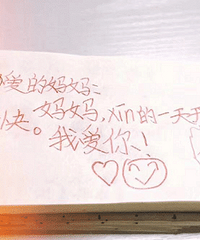 爱的妈妈:
妈妈,xin的一天开
快。我爱你!